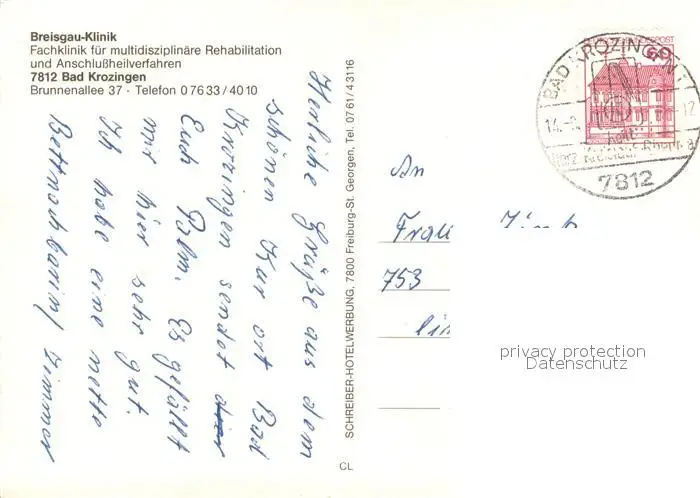 Breisgau-Klinik
Fachklinik für multidisziplinäre Rehabilitation
und Anschlußheilverfahren
7812 Bad Krozingen
Brunnenallee 37 · Telefon 0 76 33 / 40 10
Herliche Grüße aus dem
schönen Kur ort Bad
Krozingen sendet
Euch Es gefällt
mir hier sehr gut.
Ich habe eine nette
Bettnachbarin / Zimmer
SCHREIBER-HOTELWERBUNG, 7800 Freiburg-St. Georgen, Tel. 07 61 / 4 31 16
CL
60
BAD KROZINGEN 1
7812
An
Frau
753
privacy protection
Datenschutz